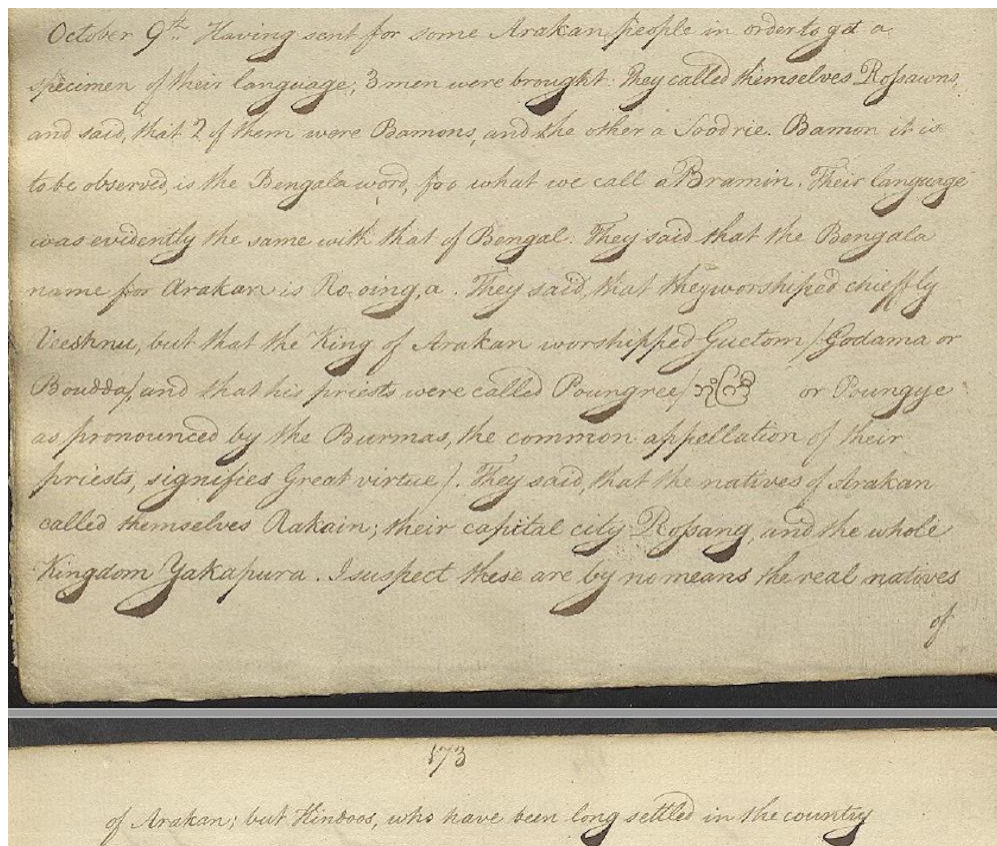 October 9th. Having sent for some Arakan people in order to get a
specimen of their language, 3 men were brought. They called themselves Rossawns,
and said, that 2 of them were Bamons, and the other a Soodrie. Bamon it is
to be observed, is the Bengala word, for what we call a Bramin. Their language
was evidently the same with that of Bengal. They said that the Bengala
name for Arakan is Ro.oing,a. They said, that they worshiped chieffly
Veeshnu, but that the King of Arakan worshipped Guetom /Godama or
Boudda/, and that his priests were called Poungree/ ဘုံကြီး or Poungye
as pronounced by the Burmas, the common appellation of their
priests, signifies Great virtue/. They said, that the natives of Arakan
called themselves Rakain; their capital city Rossang, and the whole
Kingdom Yakapura. I suspect these are by no means the real natives
of
173
of Arakan; but Hindoos, who have been long settled in the country